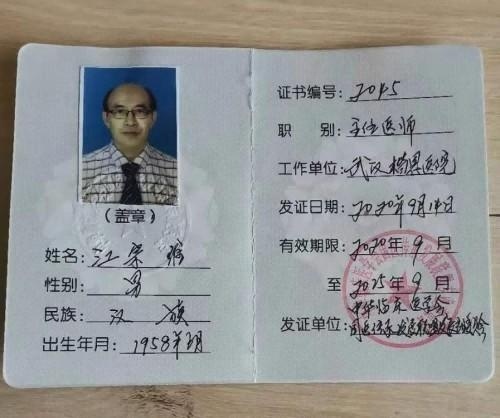 (盖章)
姓名: 江
性别: 男
民族: 汉 族
出生年月: 1958年
证书编号: 2045
职 别: 主任医师
工作单位: 武汉 医院
发证日期: 2020年9月14日
有效期限: 2020年 9 月
至 2025年 9 月
中华临床医学会
发证单位: